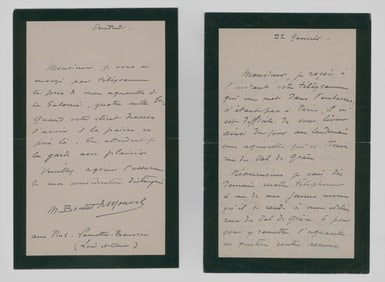 Vendredi.
Monsieur, je vous ai
envoyé par télégramme
le prix de mon aquarelle de
la Salomé. quatre mille
Quand votre client désirera
l'avoir il la paiera ce
prix là. En attendant je
la garde avec plaisir
Veuillez agréer l'assurance
de ma considération distinguée
M. Boutet de Monvel
(Loir et Cher)
22 Janvier.
Monsieur, je reçois à
l'instant votre télégramme
qui me met dans l'embarras,
n'étant pas à Paris, il m'
est difficile de vous livrer
ainsi du jour au lendemain
une aquarelle qui se trouve
rue du Val de Grâce.
Néanmoins je vais dès
demain matin télégraphier
à un de mes jeunes
qu'il se rende à mon atelier
rue du Val de Grâce 6 pour
vous y remettre l'aquarelle
en question contre